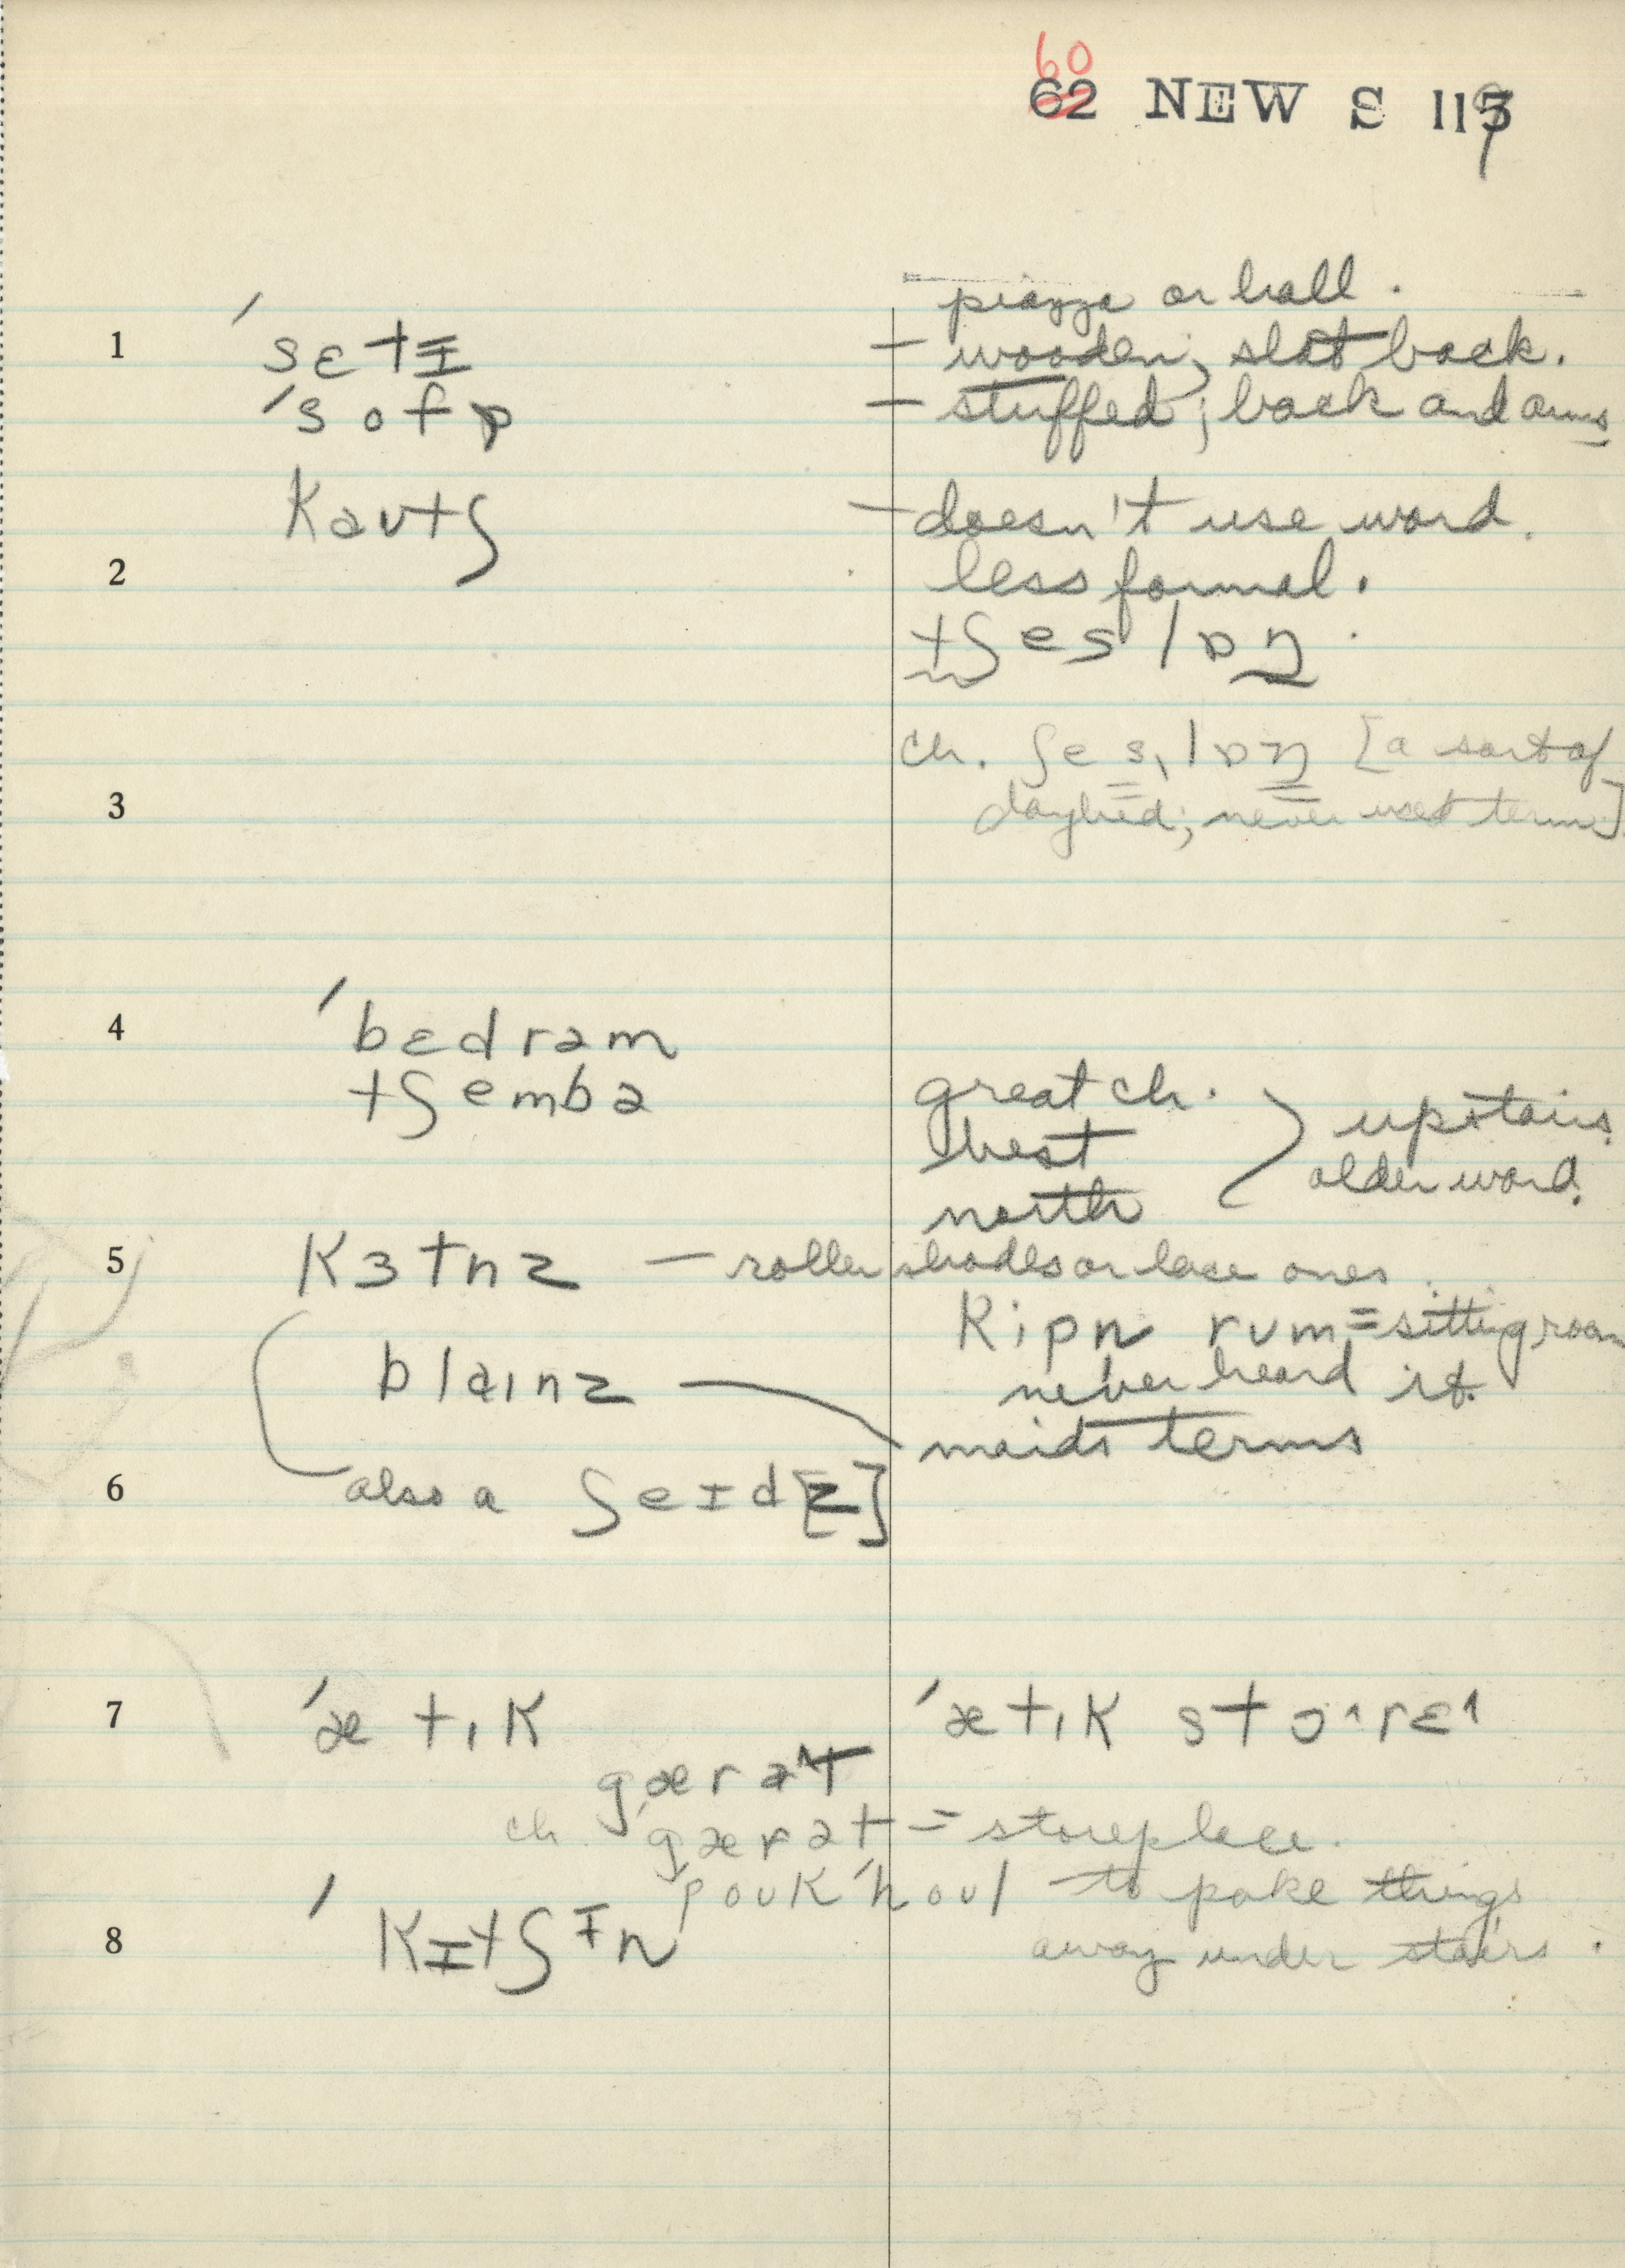 60
62 NEW S 117
piazza or hall.
1 ˈsɛtɪ — wooden, slat back.
ˈsofɒ — stuffed; back and arms
kautʃ — doesn't use word.
2 less formal.
tʃeslɒŋ.
ch. ʃeslɒŋ [a sort of
3 daybed; never used term]
4 ˈbɛdrəm
tʃembə great ch.
best } upstairs
north older word.
5 kɜtnz — roller shades or lace ones.
kipn rum = sitting room
blaɪnz — never heard it.
maids terms
6 also a ʃeɪd[z]
7 ˈætɪk ˈætɪk stɔˑrɛˑ
gærət
ch. gærət = storeplace.
poukˈhoul to poke things
8 ˈkɪtʃɪn away under stairs.